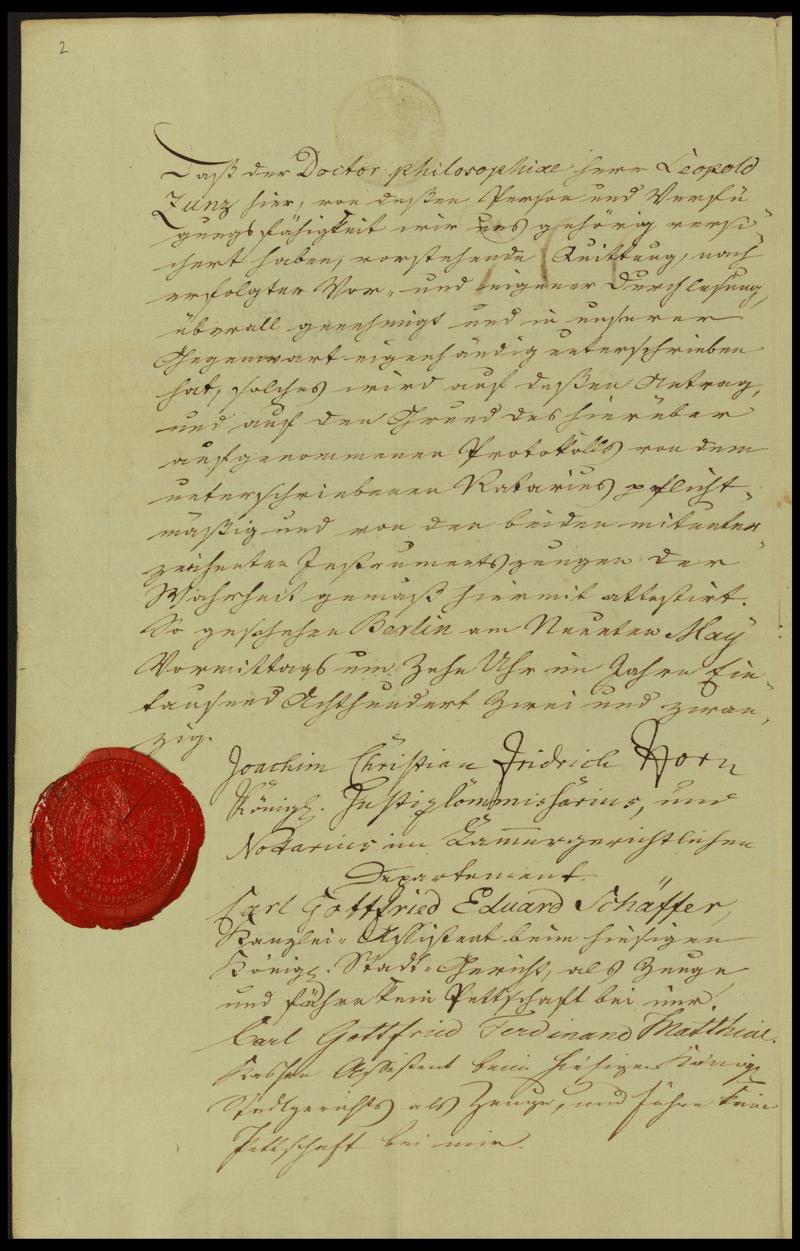 2
Daß der Doctor philosophiae Herr Leopold
Zunz hier, von deßen Person und Verfü-
gungsfähigkeit wir uns gehörig versi-
chert haben, vorstehende Quittung, nach
erfolgter Vor- und eigener Durchlesung,
überall genehmigt und in unserer
Gegenwart eigenhändig unterschrieben
hat, solches wird auf deßen Antrag,
und auf den Grund des hierüber
aufgenommenen Protokolls von dem
unterschriebenen Notarius pflicht-
mäßig und von den beiden mitunter-
zeichneten Instrumentszeugen der
Wahrheit gemäß hiermit attestirt.
So geschehen Berlin am Neunten May
Vormittags um Zehn Uhr im Jahre Ein-
tausend Achthundert Zwei und zwan-
zig.
Joachim Christian Fridrich Horn
Königl. Justizkommissarius, und
Notarius im Kammergerichtlichen
Departement.
Carl Gottfried Eduard Schäffer,
Kanzlei-Assistent beim hiesigen
Königl. Stadt-Gericht, als Zeuge
und führe kein Pettschaft bei mir.
Carl Gottfried Ferdinand Matthiae.
Kassen Assistent beim hiesigen Königl
Stadtgerichts als Zeuge, und führe kein
Pettschaft bei mir.